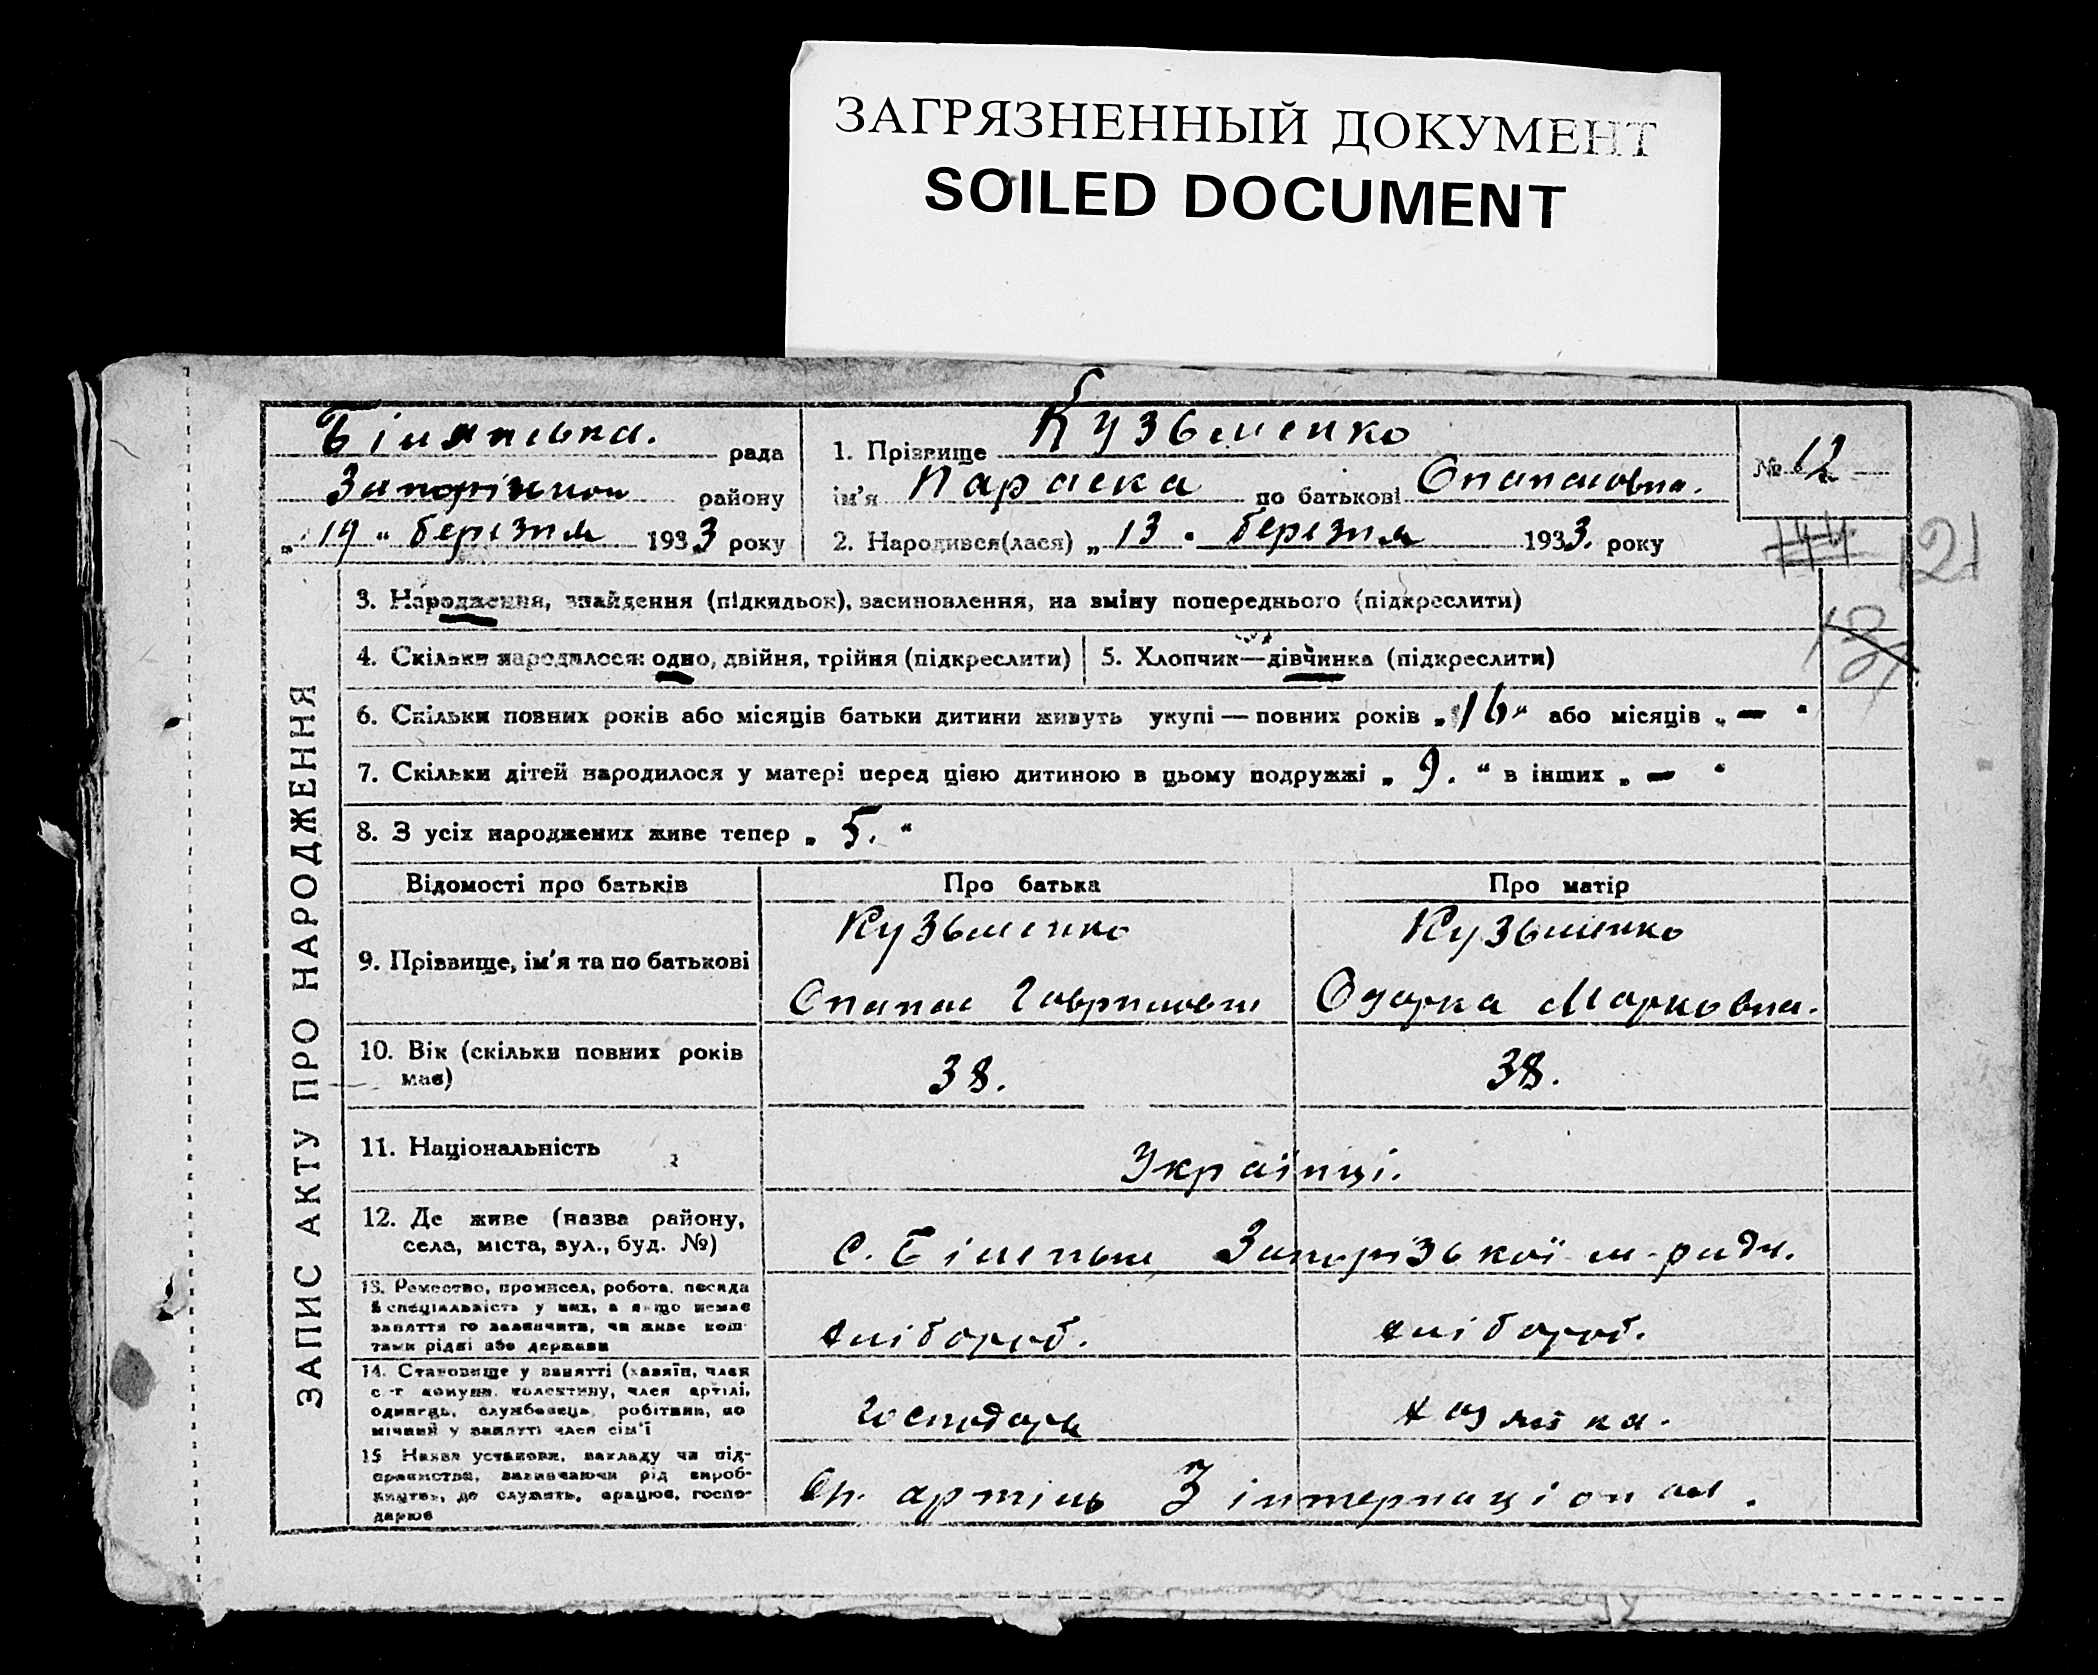 ЗАГРЯЗНЕННЫЙ ДОКУМЕНТ
SOILED DOCUMENT
Біленська. рада
Запорізькои району
„19" березня 1933 року
1. Прізвище Кузьменко
ім'я Параска по батькові Опанасовна.
2. Народився(лася) „13" березня 1933. року
№ 12
144
121
ЗАПИС АКТУ ПРО НАРОДЖЕННЯ
3. Народження, знайдення (підкидьок), засиновлення, на зміну попереднього (підкреслити)
4. Скільки народилося: одно, двійня, трійня (підкреслити)
5. Хлопчик—дівчинка (підкреслити)
6. Скільки повних років або місяців батьки дитини живуть укупі — повних років „16" або місяців „—"
7. Скільки дітей народилося у матері перед цією дитиною в цьому подружжі „9." в інших „—"
8. З усіх народжених живе тепер „5."
Відомості про батьків Про батька Про матір
9. Прізвище, ім'я та по батькові
Кузьменко
Опанас Гаврилович
Кузьменко
Одарка Марковна.
10. Вік (скільки повних років має)
38. 38.
11. Національність
Українці.
12. Де живе (назва району,
села, міста, вул., буд. №)
с. Біленьке Запорізької м-ради.
13. Ремество, промисел, робота, посада
й спеціальність у них, а якщо немає
заняття то зазначити, чи живе кош-
тами рідні або держави
хлібороб. хлібороб.
14. Становище у занятті (хазяїн, член
с.-г. комуни, колективу, член артілі,
одинець, службовець, робітник, по-
мічний у занятті член сім'ї
Господарь хазяйка.
15 Назва установи, закладу чи під-
приємства, зазначаючи рід вироб-
ництва, де служить, працює, госпо-
дарює
артіль 3 інтернаціонал.